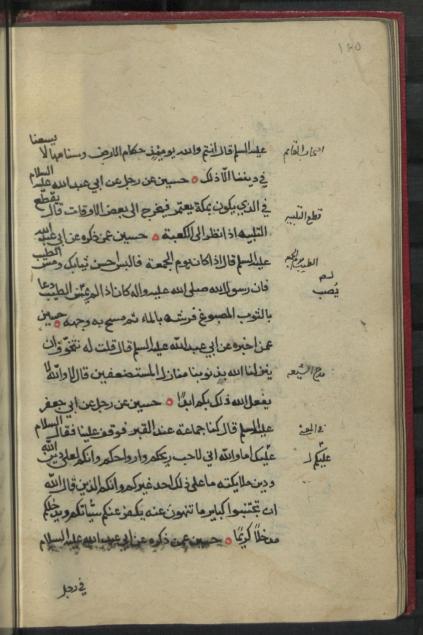 ١٤٥
اصحاب القائم
عليه السلام قال انتم والله يومئذ حكام الارض وسنامها لا يسعنا
في ديننا الا ذلك حسين عن رجل عن ابي عبد الله عليه السلام
قطع التلبية
في الذي يكون بمكة يعتمر فيخرج الى بعض الاوقات قال يقطع
التلبية اذا نظر الى الكعبة حسين عمن ذكره عن ابي عبد الله
الطيب يوم الجمعة
عليه السلام قال اذا كان يوم الجمعة فالبس احسن ثيابك ومس الطيب
لم يُصب
فان رسول الله صلى الله عليه واله كان اذا لم يصب الطيب دعا
بالثوب المصبوغ فرشه بالماء ثم مسح به وجهه حسين
عمن اخبره عن ابي عبد الله عليه السلام قال قلت له نتخوف ان
مدح الشيعه
ينزلنا الله بذنوبنا منازل المستضعفين قال لا والله لا
يفعل الله ذلك بكم ابدا حسين عن رجل عن ابي جعفر
عليه السلام قال كنا جماعة عند القبر فوقف علينا فقال السلام
عليكم
عليكم اما والله اني لاحب ريحكم وارواحكم وانكم لعلى دين الله
ودين ملائكته ما على ذلك احد غيركم وانكم الذين قال الله
ان تجتنبوا كبائر ما تنهون عنه نكفر عنكم سيئاتكم وندخلكم
مدخلا كريما حسين عمن ذكره عن ابي عبد الله عليه السلام
في رجل